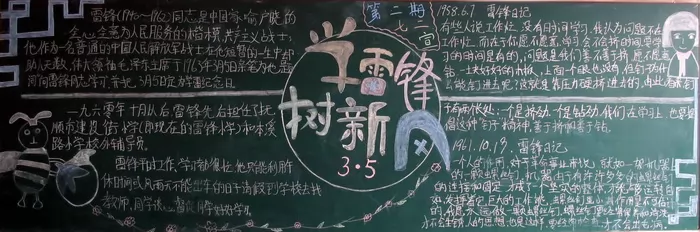 雷锋(1940-1962)同志是中国家喻户晓的
全心全意为人民服务的楷模,共产主义战士,
他作为一名普通的中国人民解放军战士,在他短暂的一生中却
助人无数,伟大领袖毛泽东主席于1963年3月5日亲笔为他题
词向雷锋同志学习,并把3月5日定为学雷锋纪念日.
一九六零年十月以后,雷锋先后担任了抚
顺市建设街小学(即现在的雷锋小学)和本溪
路小学校外辅导员.
雷锋平时工作、学习都很忙,他只能利用
休息时间或风雨天不能出车的日子请假到学校去找
教师、同学谈心
第二期
七二宣
学雷锋
树新风
3·5
1958.6.7 雷锋日记
有些人说工作忙、没有时间学习,我认为问题不在
工作忙,而在于你愿不愿意学习,会不会挤时间,要学
习的时间是有的,问题是我们善不善于挤,愿不愿意
钻,一块好好的木板,上面一个眼也没有,但钉子为什
么能钉进去呢?这就是靠压力硬挤进去的,由此看来,
钉子有两个长处:一个是挤劲,一个是钻劲,我们在学习上,也要提
倡这种“钉子”精神,善于挤和善于钻.
1961.10.19. 雷锋日记
一个人的作用,对于革命事业来说,就如一架机器
上的一颗螺丝钉,机器由于有许许多多的螺丝钉
的连接和固定,才成了一个坚实的整体,才能够运转自
如,发挥它巨大的工作能,螺丝钉虽小,其作用是不可估
的,我愿永远做一颗螺丝钉,螺丝钉要经常保养和清洗,
才不会生锈,人的思想也是这样,要经常检查,才不会出毛病.